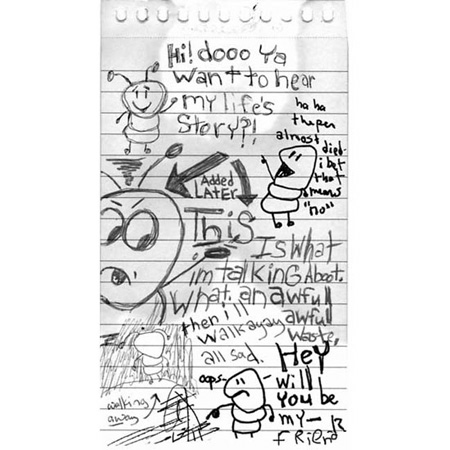 Hi! dooo Ya
want to hear
my life's
Story?!
ha ha
the pen
almost died
i bet
that
means
"no"
Added
LATER
This
Is What
im talkinG About.
What an awfull
awfull
waste.
then i'll
walk ayay
all sad.
walking
away
oops-
Hey
will
You be
my-
fRiend